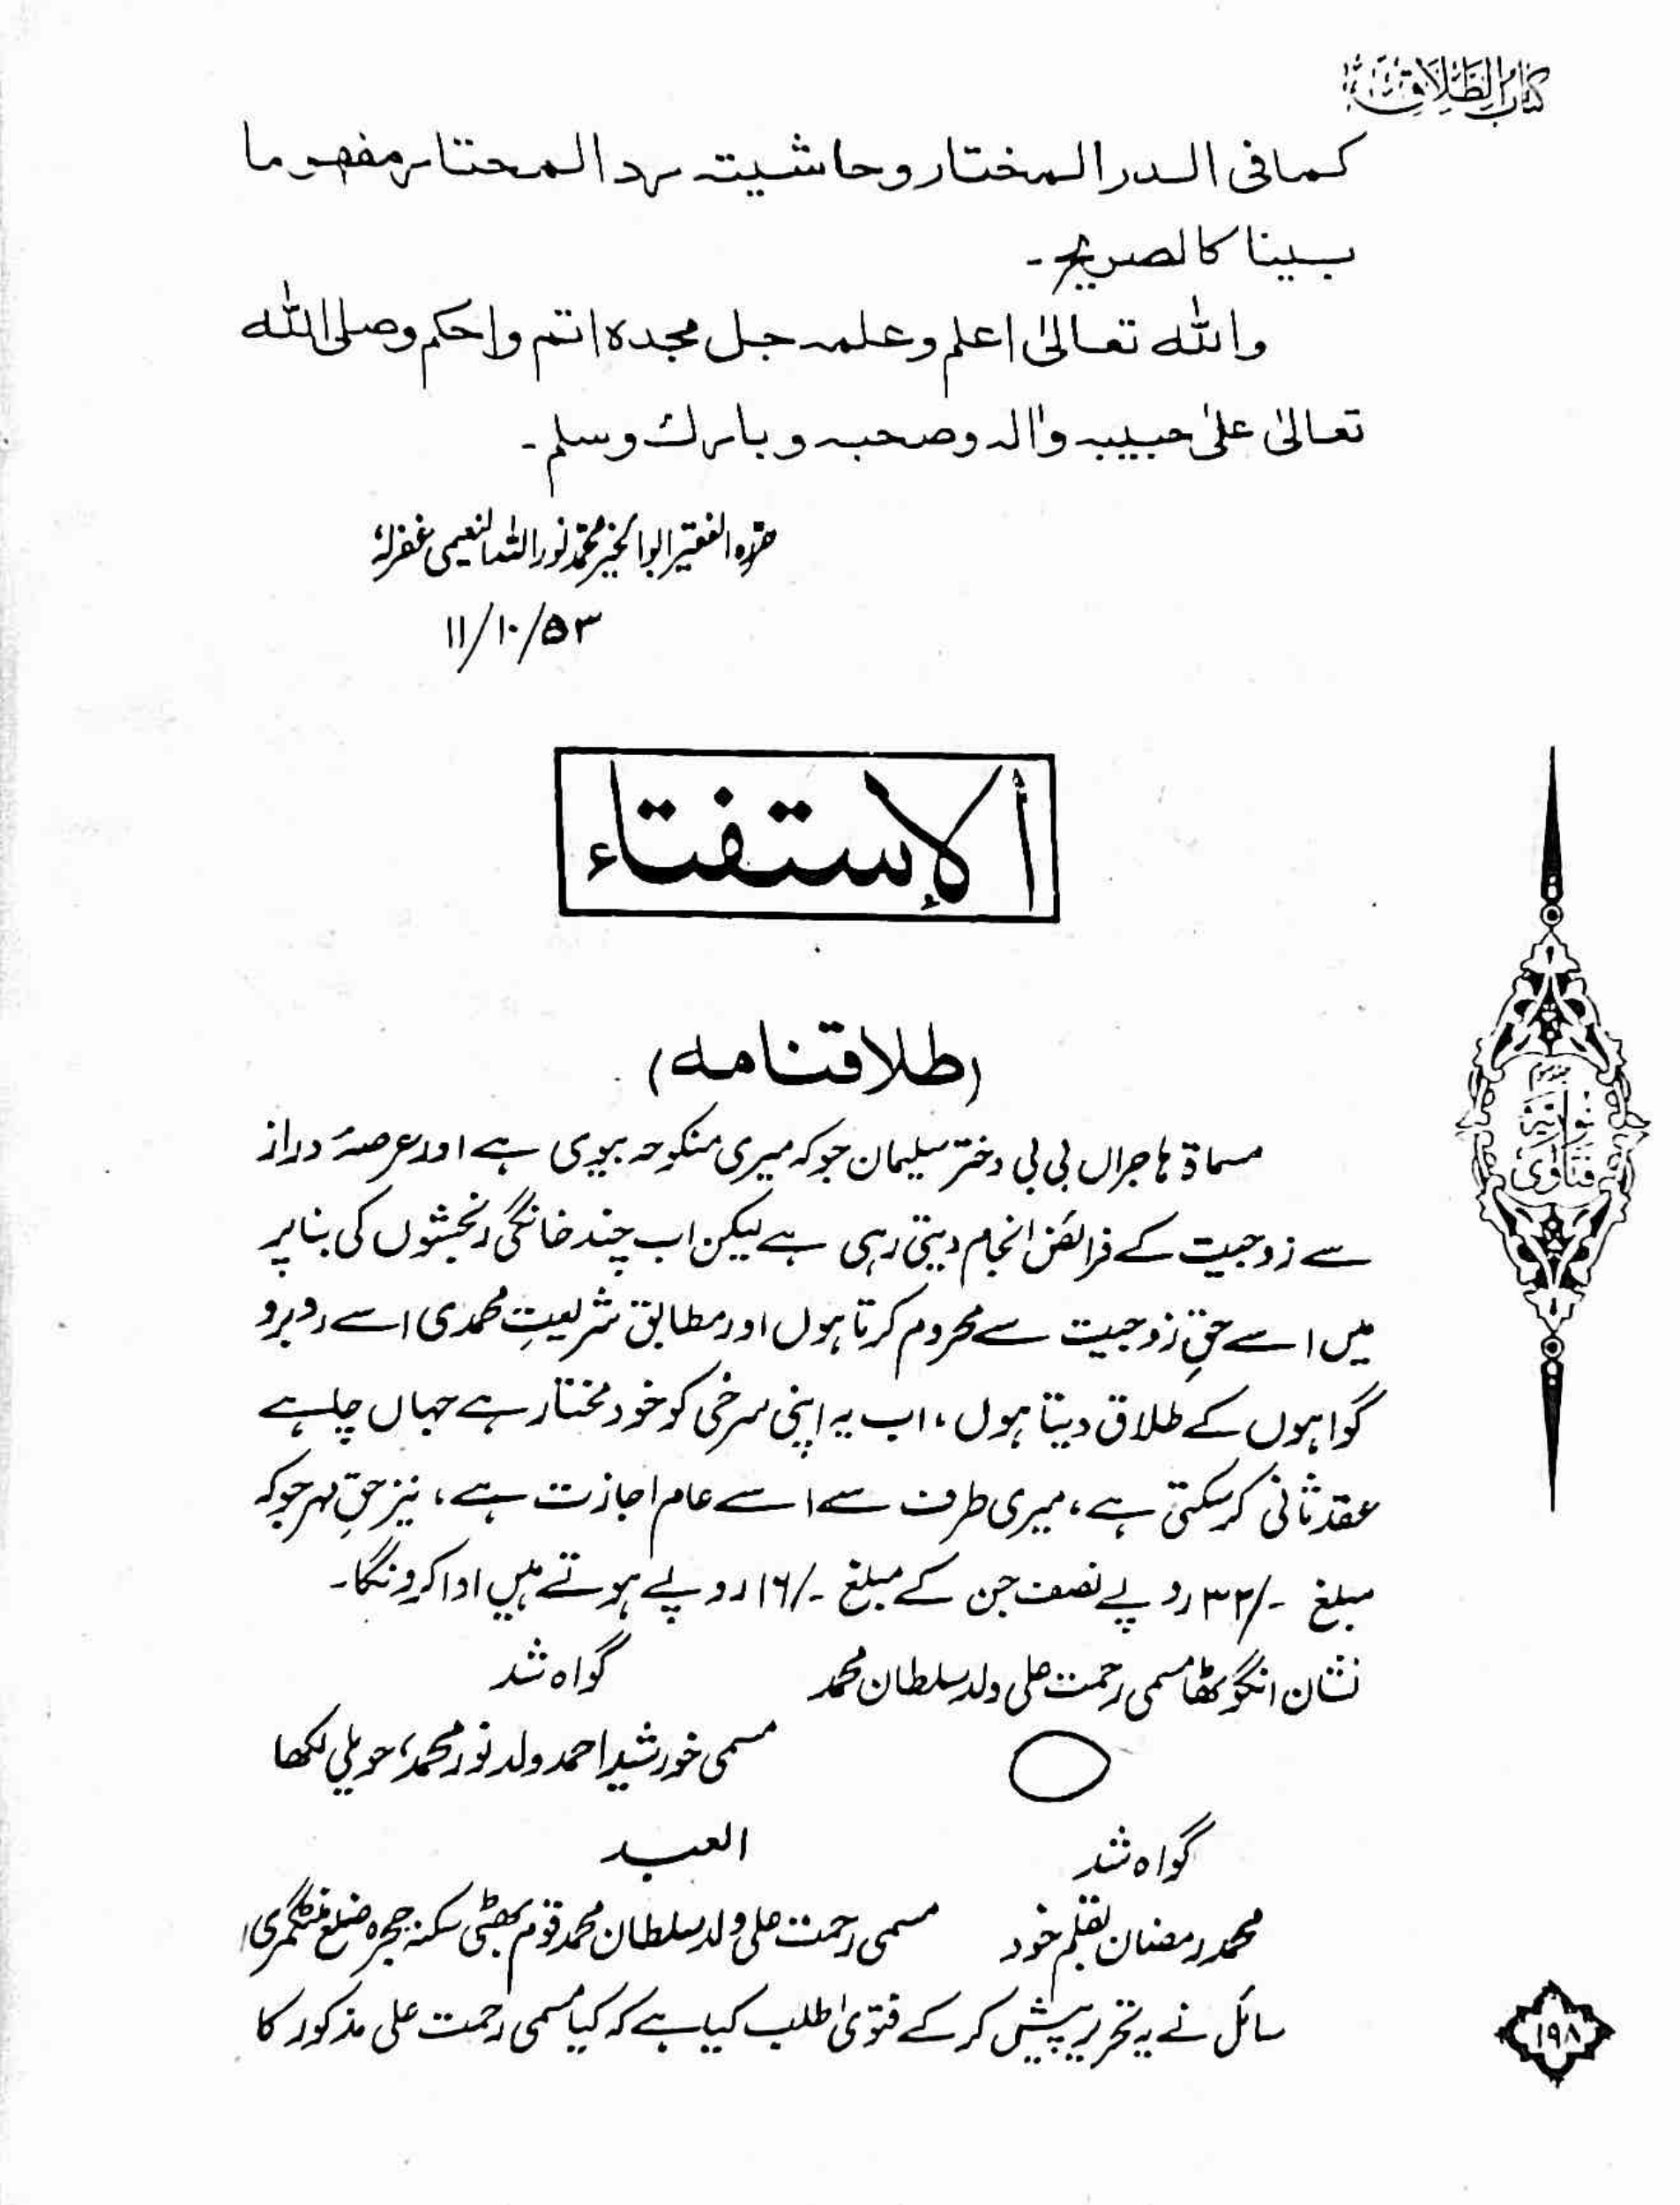 کتاب الطلاق
کما فی الدر المختار و حاشیتہ رد المحتار مفھوما
بینا کالصریح۔
واللہ تعالیٰ اعلم و علمہ جل مجدہ اتم واحکم وصلی اللہ
تعالیٰ علیٰ حبیبہ واٰلہ وصحبہ و بارک وسلم۔
حررہ الفقیر ابو الخیر محمد نور اللہ النعیمی غفرلہٗ
۱۱/۱۰/۵۳
ألإستفتاء
(طلاقنامہ)
مسماۃ ہاجراں بی بی دختر سلیمان جو کہ میری منکوحہ بیوی ہے اور عرصۂ دراز
سے زوجیت کے فرائض انجام دیتی رہی ہے لیکن اب چند خانگی رنجشوں کی بنا پر
میں اسے حقِ زوجیت سے محروم کرتا ہوں اور مطابق شریعتِ محمدی اسے روبرو
گواہوں کے طلاق دیتا ہوں، اب یہ اپنی مرضی کو خود مختار ہے جہاں چاہے
عقد ثانی کر سکتی ہے، میری طرف سے اسے عام اجازت ہے، نیز حقِ مہر جو کہ
مبلغ ۔/۳۲ روپے نصف جن کے مبلغ ۔/۱۶ روپے ہوتے ہیں ادا کرونگا۔
نشان انگوٹھا مسمی رحمت علی ولد سلطان محمد
گواہ شد
مسمی خورشید احمد ولد نور محمد، حویلی لکھا
گواہ شد
العبد
محمد رمضان بقلم خود
مسمی رحمت علی ولد سلطان محمد قوم بھٹی سکنہ حجرہ ضلع منٹگمری
سائل نے یہ تحریر پیش کر کے فتویٰ طلب کیا ہے کہ کیا مسمی رحمت علی مذکور کا
جلد سوم
فتاویٰ نوریہ
۱۹۸